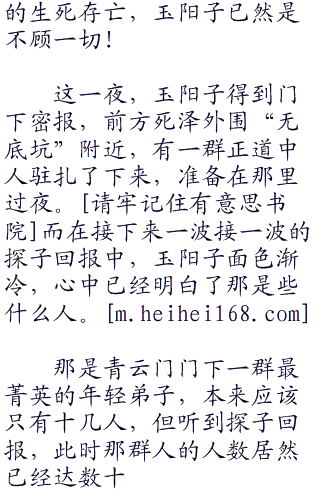 的生死存亡，玉阳子已然是
不顾一切！
这一夜，玉阳子得到门
下密报，前方死泽外围“无
底坑”附近，有一群正道中
人驻扎了下来，准备在那里
过夜。[请牢记住有意思书
院]而在接下来一波接一波的
探子回报中，玉阳子面色渐
冷，心中已经明白了那是些
什么人。[m.heihei168.com]
那是青云门门下一群最
菁英的年轻弟子，本来应该
只有十几人，但听到探子回
报，此时那群人的人数居然
已经达数十